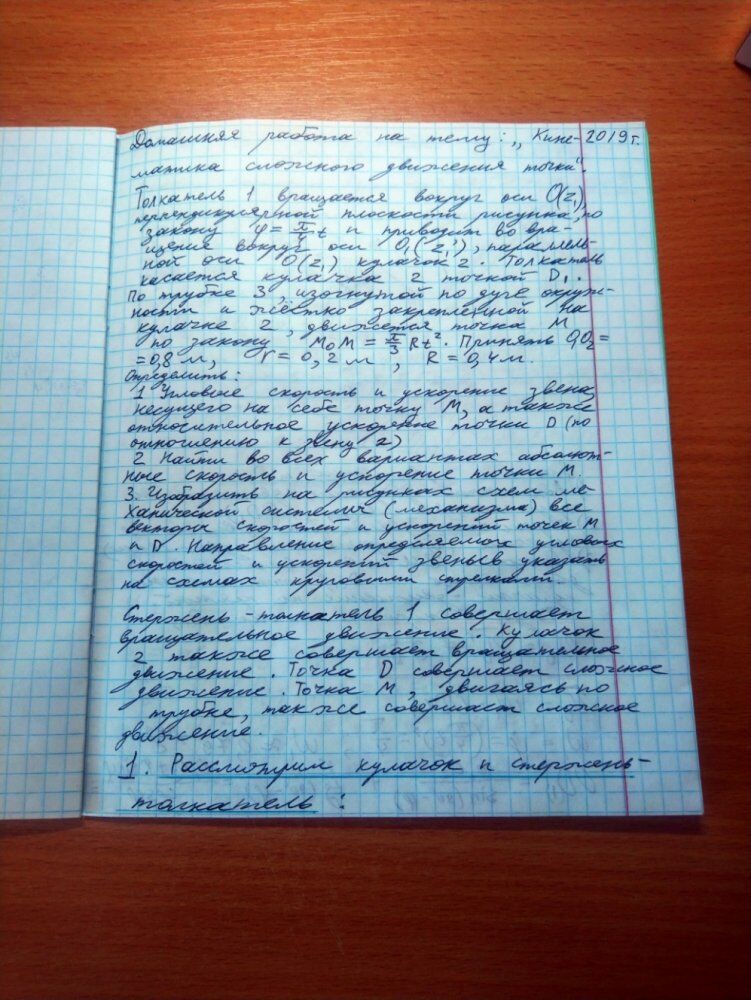 Домашняя работа на тему: „Кине- 2019 г.
матика сложного движения точки“.
Толкатель 1 вращается вокруг оси O(z₁)
перпендикулярной плоскости рисунка, по
закону φ = π/4 t и приводит во вра-
щение вокруг оси O₁(z₁'), параллель-
ной оси O(z₁) кулачок 2. Толкатель
касается кулачка 2 точкой D₁.
По трубке 3, изогнутой по дуге окруж-
ности и жёстко закрепленной на
кулачке 2, движется точка M
по закону M₀M = π/3 Rt². Принять O₁O₂ =
= 0,8 м, r = 0,2 м, R = 0,4 м.
Определить:
1 Угловые скорость и ускорение звена,
несущего на себе точку M, а также
относительное ускорение точки D (по
отношению к звену 2)
2 Найти во всех вариантах абсолют-
ные скорость и ускорение точки M.
3. Изобразить на рисунках схем ме-
ханической системы (механизма) все
векторы скоростей и ускорений точек M
и D. Направление определяемых угловых
скоростей и ускорений звеньев указать
на схемах круговыми стрелками.
Стержень-толкатель 1 совершает
вращательное движение. Кулачок
2 также совершает вращательное
движение. Точка D совершает сложное
движение. Точка M, двигаясь по
трубке, также совершает сложное
движение.
1. Рассмотрим кулачок и стержень-
толкатель: